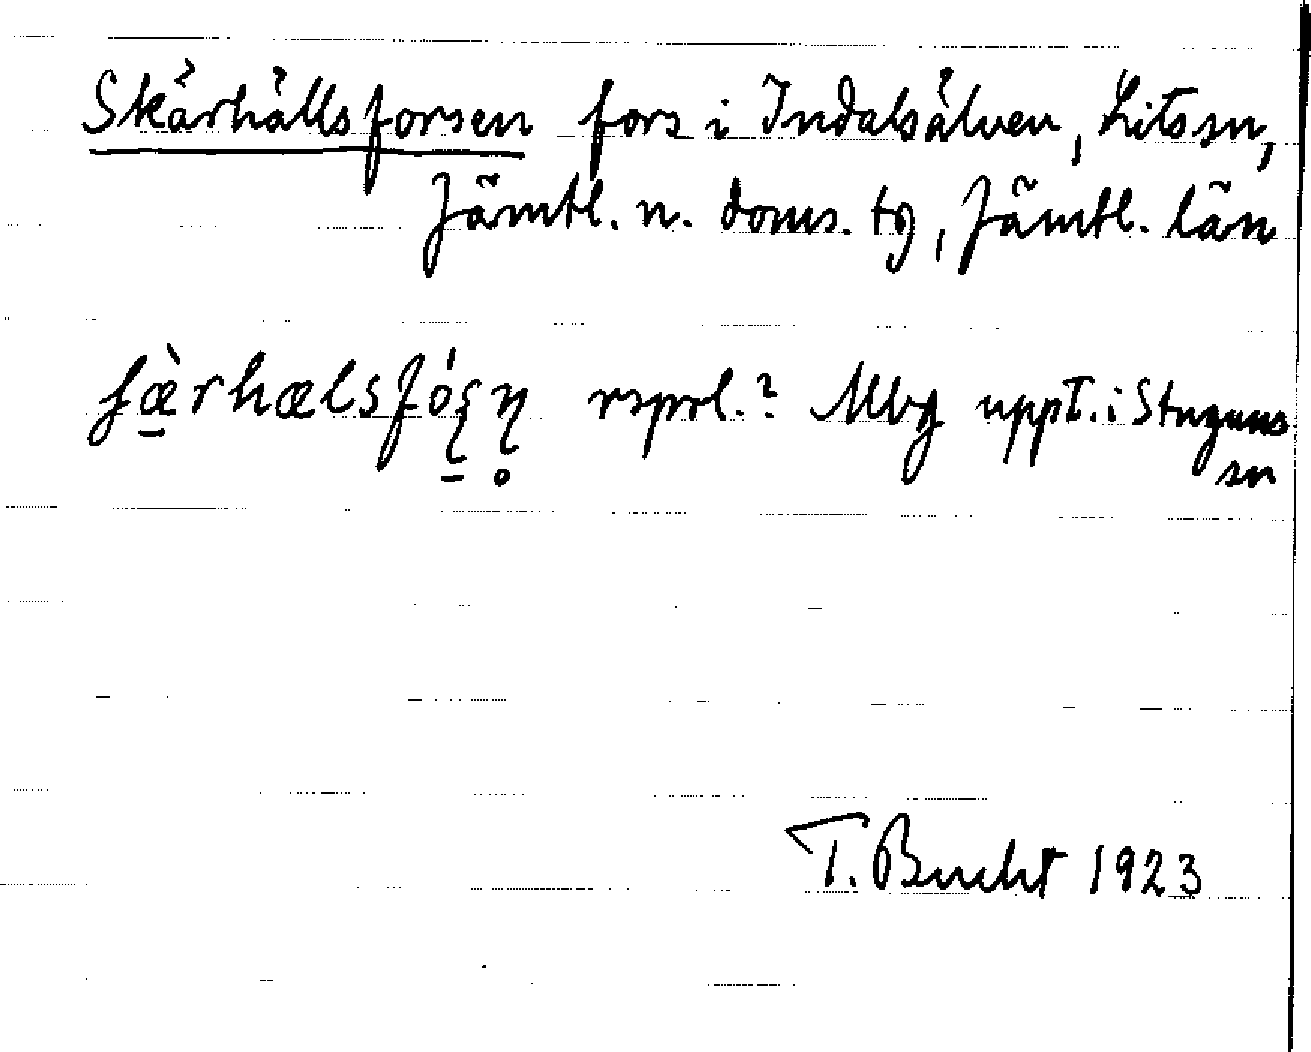 Skärhällsforsen fors i Indalsälven, Lits sn,
Jämtl. n. doms. tg, Jämtl. län
ʃæ̠̀rhælsfóʂ̠ŋ̥ rsprl.? Mbg uppt. i Stuguns
sn
T. Bucht 1923